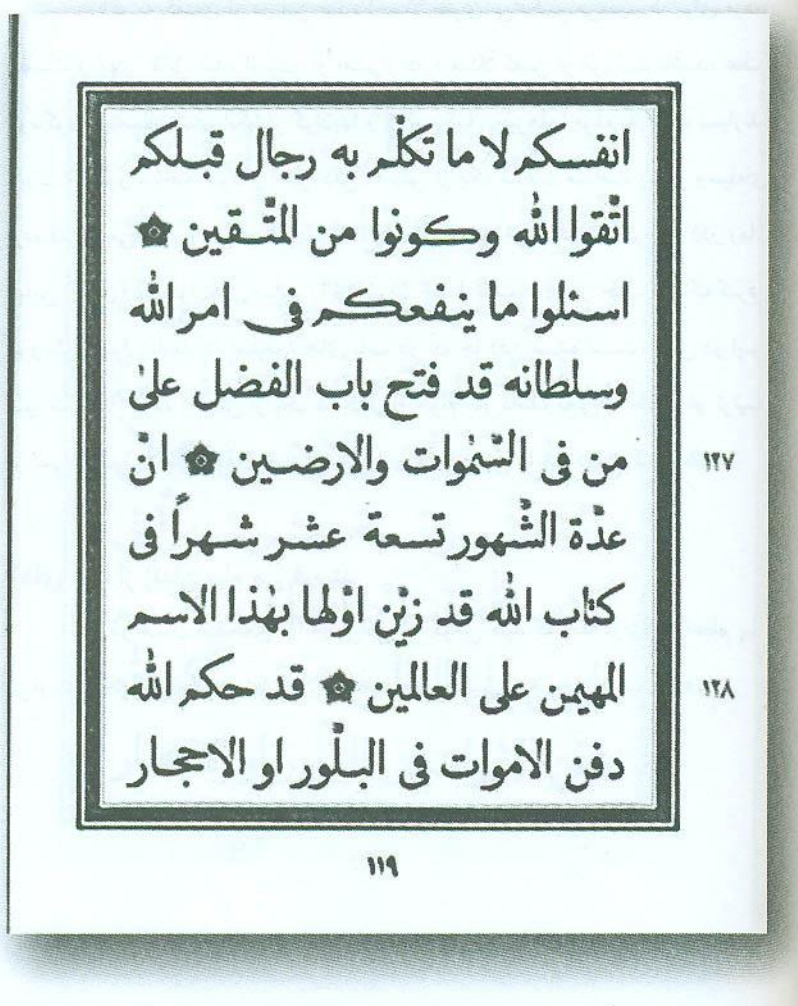 انفسكم لا ما تكلّم به رجال قبلكم
اتّقوا الله وكونوا من المتّقين ۞
اسئلوا ما ينفعكم فى امر الله
وسلطانه قد فتح باب الفضل على
من فى السّمٰوات والارضين ۞ انّ
١٢٧
عدّة الشّهور تسعة عشر شهراً فى
كتاب الله قد زيّن اوّلها بهٰذا الاسم
المهيمن على العالمين ۞ قد حكم الله
١٢٨
دفن الاموات فى البلّور او الاحجار
١١٩